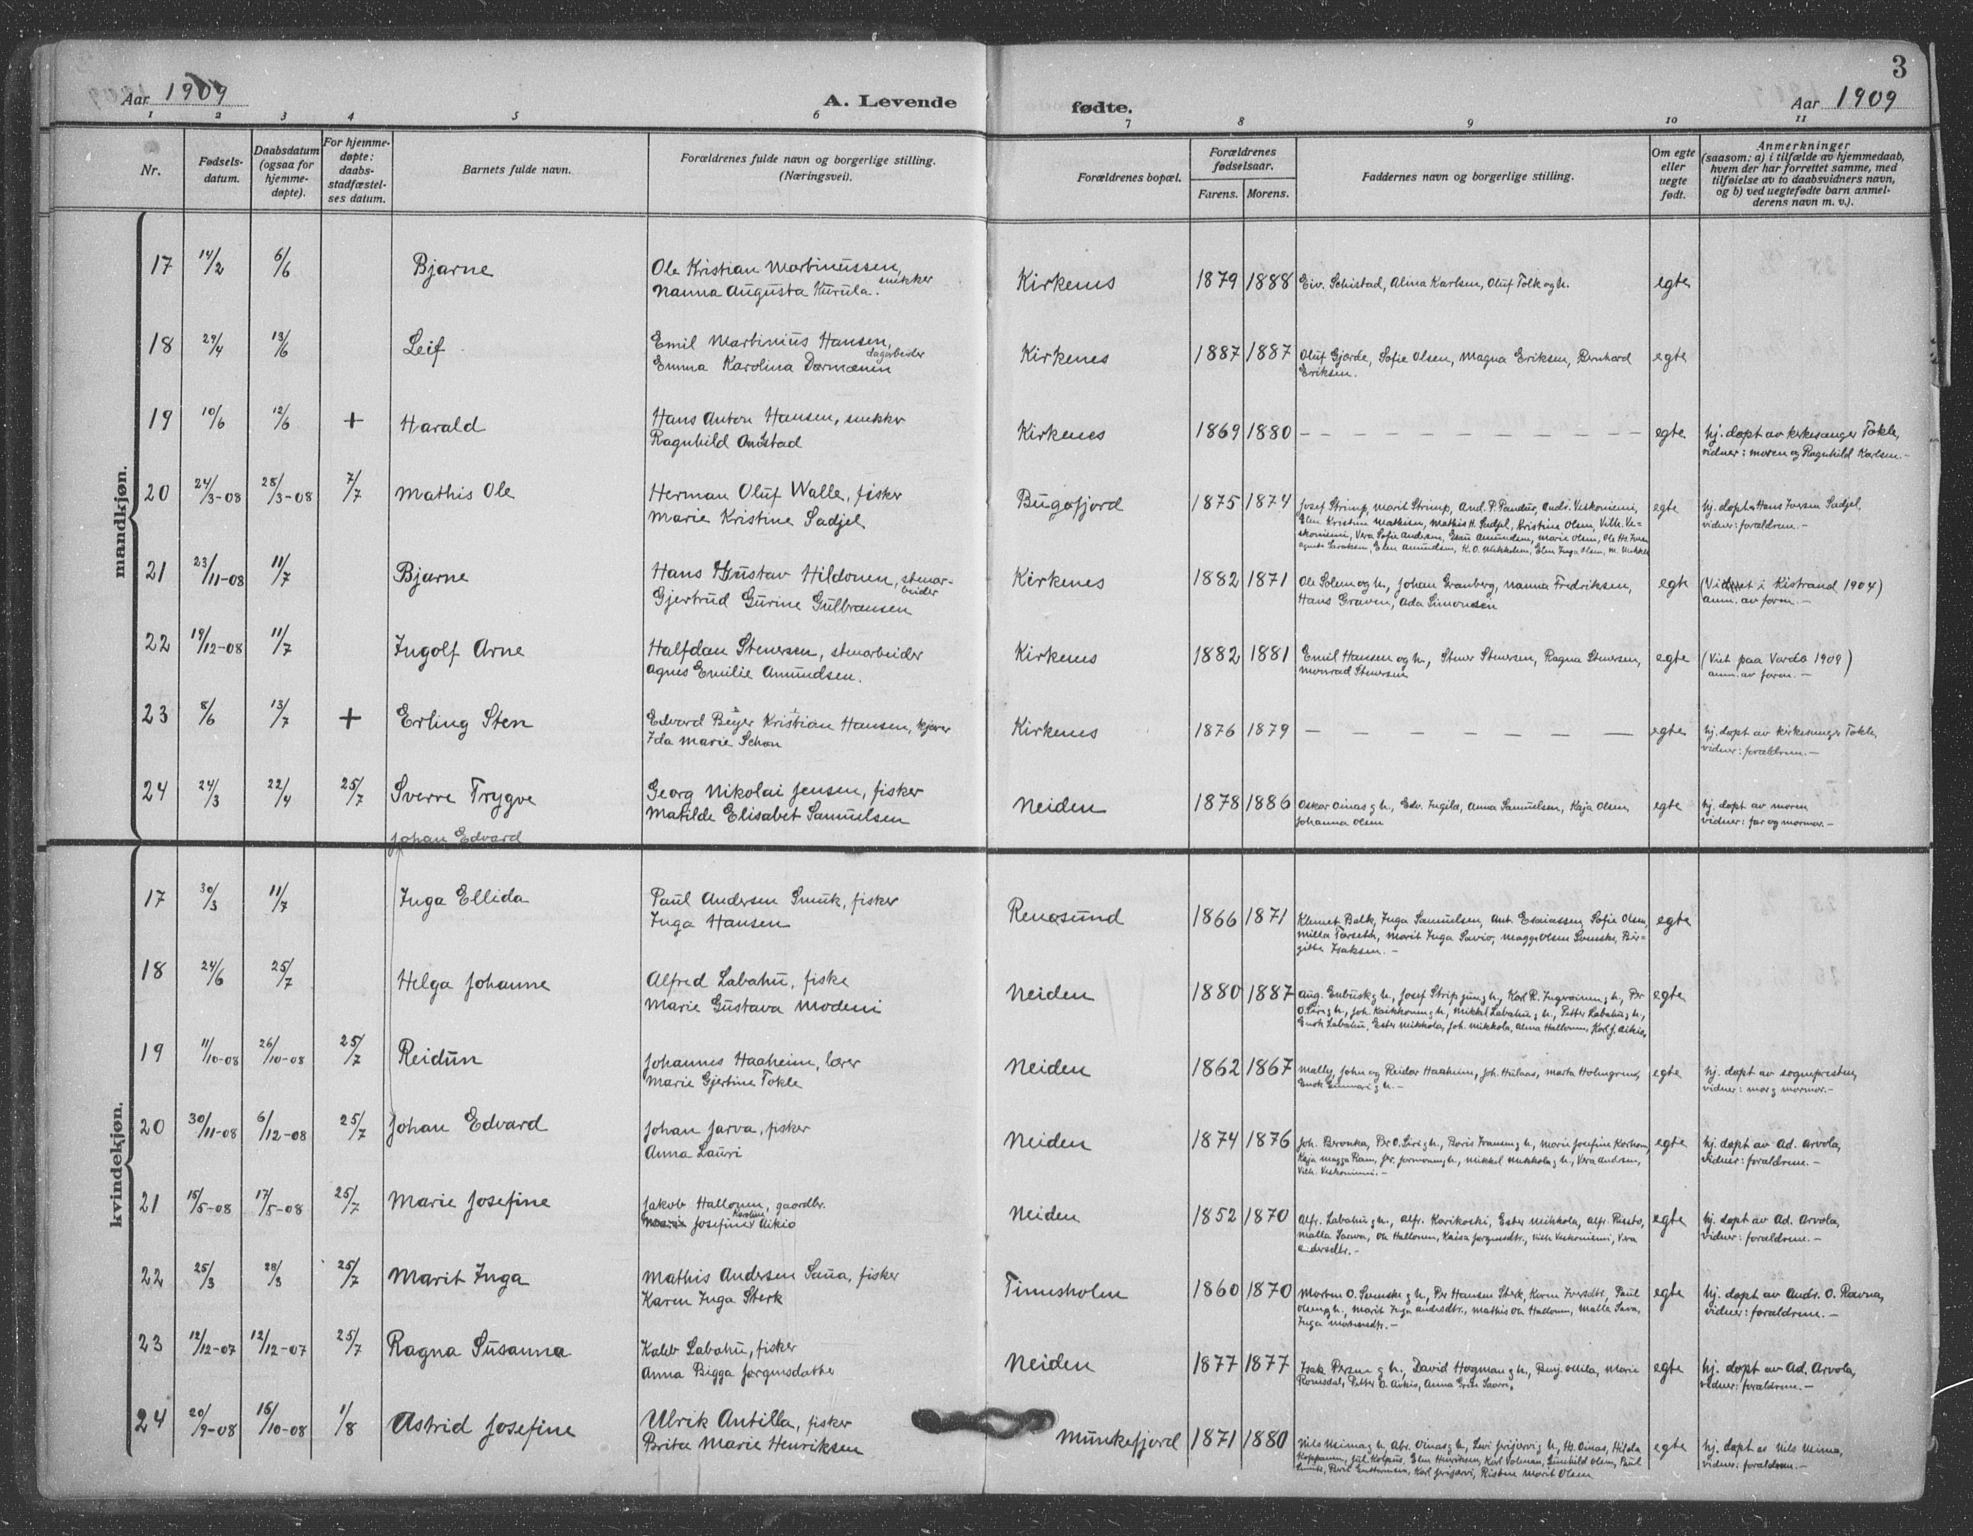 3
Aar 1909
A. Levende
fødte.
Aar 1909
1 2 3 4 5 6 7 8 9 10 11
Nr.
Fødsels-
datum.
Daabsdatum
(ogsaa for
hjemme-
døpte).
For hjemme-
døpte:
daabs-
stadfæstel-
ses datum.
Barnets fulde navn.
Forældrenes fulde navn og borgerlige stilling.
(Næringsvei).
Forældrenes bopæl.
Forældrenes
fødselsaar.
Farens. Morens.
Faddernes navn og borgerlige stilling.
Om egte
eller
uegte
født.
Anmerkninger
(saasom: a) i tilfælde av hjemmedaab,
hvem der har forrettet samme, med
tilføielse av to daabsvidners navn,
og b) ved uegtefødte barn anmel-
derens navn m. v.).
mandkjøn.
17 14/2 6/6 Bjarne
Ole Kristian Martinussen, snekker
Nanna Augusta Kurula.
Kirkenes 1879 1888
Eiv. Schistad, Alma Karlsen, Oluf Tolk og h.
egte
18 29/4 13/6 Leif
Emil Martinius Hansen, dagarbeider
Emma Karolina Dærmænin
Kirkenes 1887 1887
Oluf Gjørde, Sofie Olsen, Magna Eriksen, Bernhard
Eriksen.
egte
19 10/6 12/6 + Harald
Hans Anton Hansen, snekker
Ragnhild
Kirkenes 1869 1880 – – – –
egte
hj. døpt av kirkesanger Tokle,
vidner: moren og Ragnhild Karlsen.–
20 24/3-08 28/3-08 7/7 Mathis Ole
Herman Oluf Walle, fisker
Marie Kristine Sadjel
Bugøfjord 1875 1874
Josef Strimp, Marit Strimp, And. P. Pandur, Andr. Veskoniemi,
Elen Kristine Mathisen, Mathis H. Sadjel, Kristine Olsen, Vilh. Ve-
skoniemi, Vera Sofie Andersen, Esau Amundsen, Marie Olsen, Ole Hs.
Elen Amundsen, K. O. Mikkolem, Elen Inga Olsen, M.
egte
hj. døpt av Hans Iversen Sadjel,
vidner: forældrene.–
21 23/11-08 11/7 Bjarne
Hans Gustav Hildonen, stenar-
beider
Gjertrud Gurine Gulbransen
Kirkenes 1882 1871
Ole Solem og h., Johan Granberg, Nanna Fredriksen,
Hans Graven, Ada Simonsen
egte
i Kistrand 1904)
anm. av foren.–
22 19/12-08 11/7 Ingolf Arne
Halfdan Stenersen, stenarbeider
Agnes Emilie Amundsen.
Kirkenes 1882 1881
Emil Hansen og h., Stener Stenersen, Ragna Stenersen,
Monrad Stenersen
egte
(Viet paa Vardø 1909)
anm. av foren.–
23 8/6 13/7 + Erling Sten
Edvard Beyer Kristian Hansen, kjører
Ida Marie Schøn
Kirkenes 1876 1879 – – – –
egte
hj. døpt av kirkesanger Tokle,
vidner: forældrene.–
24 24/3 22/4 25/7 Sverre Trygve
Georg Nikolai Jensen, fisker
Matilde Elisabet Samuelsen
Neiden 1878 1886
Oskar Oinas g h., Edv. Ingilæ, Anna Samuelsen, Kaja Olsen,
Johanna Olsen
egte
hj. døpt av moren
vidner: far og mormor.–
Johan Edvard
kvindekjøn.
17 30/3 11/7 Inga Ellida
Paul Andersen Smuk, fisker
Inga Hansen
Renøsund 1866 1871
Klemet Balk, Inga Samuelsen, Ant. Esaiassen, Sofie Olsen,
Milla Tørseth, Marit Inga Savio, Magge Olsen Svenske, Bir-
gitte Isaksen.–
egte
18 24/6 25/7 Helga Johanne
Alfred Labahu, fiske
Marie Gustava Modeni
Neiden 1880 1887
Aug. Enbusk g h., Josef Strip jun g h., Karl R. Ingeroinen g h., Br
O. Siri g h., Joh. Kaikkonen g h., Mikkel Labahu g h., Petter Labahu g h.,
Enok Labahu, Ester Mikkola, Joh. Mikkola, Alma Hallonen, Karl J. Aikio,
egte
19 11/10-08 26/10-08 25/7 Reidun
Johannes Haaheim, lærer
Marie Gjertine Tokle
Neiden 1862 1867
Mally, John og Reidar Haaheim, Joh. Hulaas, Marta Holmgren,
Enok g h.–
egte
hj. døpt av sognepresten,
vidner: mor g mormor.–
20 30/11-08 6/12-08 25/7 Johan Edvard
Johan Jarva, fisker
Anna Lauri
Neiden 1874 1876
Joh. Beronka, Br O. Siri g h., Boris Fransen g h., Marie Josefine Korhonen,
Kaja Magga Ram, g h., Mikkel Mikkola g h., Vera Andersen,
Vilh. Veskoniemi.–
egte
hj. døpt av Ad. Arvola,
vidner: forældrene.–
21 15/5-08 17/5-08 25/7 Marie Josefine
Jakob Hallonen, gaardbr.
Marie Josefine Karoline Aikio
Neiden 1852 1870
Alfr. Labahu g h., Alfr. Karikoski, Ester Mikkola, Alfr. Risto,
Malla Saava, Ole Hallonen, Kaisa Jørgensdtr., Vilh. Veskoniemi, Vera
Andersdtr.–
egte
hj. døpt av Ad. Arvola,
vidner: forældrene.–
22 25/3 28/3 25/7 Marit Inga
Mathis Andersen Saua, fisker
Karen Inga Sterk
Tinnesholm 1860 1870
Morten O. Svenske g h., Per Hansen Sterk, Karen Iversdtr., Paul
Olsen g h., Marit Inga Andersdtr., Mathis Ole Hallonen, Malla Sava,
Inga Mortensdtr.–
egte
hj. døpt av Andr. O. Ravna,
vidner: forældrene.–
23 12/12-07 12/12-07 25/7 Ragna Susanna
Kaleb Labahu, fisker
Anna Bigga Jørgensdatter
Neiden 1877 1877
Isak Persen g h., David Hogman g h., Benj. Mila, Marie
Romsdal, Petter O. Aikio, Anna Grete Saari,
egte
hj. døpt av Ad. Arvola,
vidner: forældrene.–
24 20/9-08 16/10-08 1/8 Astrid Josefine
Ulrik Antilla, fisker
Brita Marie Henriksen
Munkefjord 1871 1880
Nils Neima g h., Abr. Oinas g h., Levi g h., Hs. Oinas, Hilda
Kopponen, Jul. Kolpus, Elen Henriksen, Karl Volman, Gunhild Olsen, Paul
Karl Risten Marit Olsen
egte
hj. døpt av Nils Neima,
vidner: forældrene.–